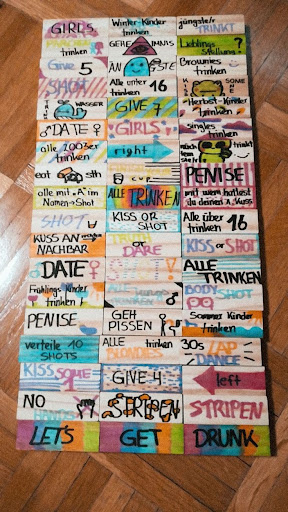 GIRLS
Winter-Kinder
trinken
jüngste/r
TRINKT
trinken
GEHEIMNIS
Lieblings
Stellung?
Give 5
ÄSTE
Brownies
trinken
SHOT
Alle unter
trinken 16
KISS SOME
ONE
WASSER
GIVE 7
Herbst-Kinder
trinken
DATE ♀
GIRLS
singles
trinken
alle 2003er
trinken
right
trinkt
eat sth
PENISE
alle mit "A" im
Namen → Shot
ALLE TRINKEN
mit wem hattest
du deinen 1. Kuss
SHOT
KISS OR
SHOT
Alle über
trinken 16
KUSS AN
NACHBAR
OR
DARE
KISS OR SHOT
DATE ♀
!
ALLE
TRINKEN
Frühlings-Kinder
trinken
ALLE
trinken ♂
BODY
SHOT
PENISE
GEH
PISSEN
Sommer Kinder
trinken
verteile 10
SHOTS
ALLE trinken
BLONDIES
30s ZAP
DANCE
KISS SOME
GIVE 4
left
NO
HANDS
STRIPEN
STRIPEN
LET'S
GET
DRUNK